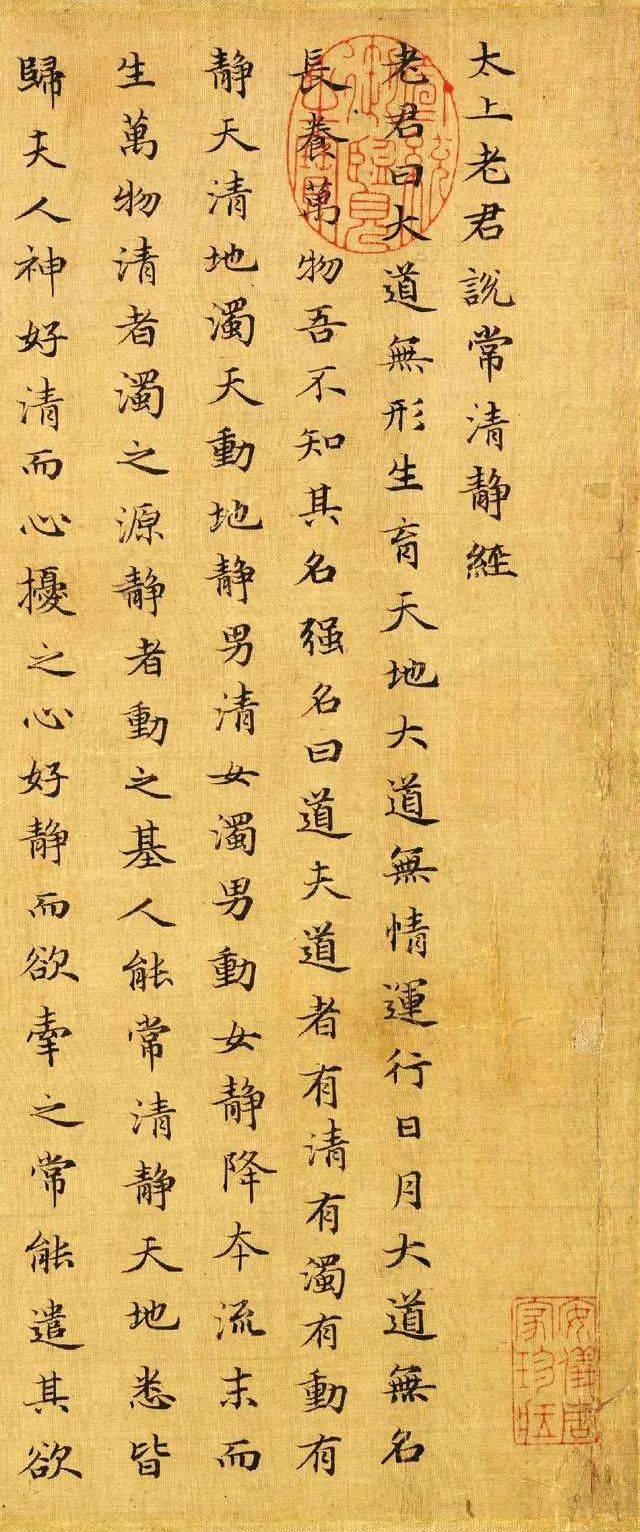 太上老君說常清靜經
老君曰大道無形生育天地大道無情運行日月大道無名
長養萬物吾不知其名强名曰道夫道者有清有濁有動有
靜天清地濁天動地靜男清女濁男動女靜降本流末而
生萬物清者濁之源靜者動之基人能常清靜天地悉皆
歸夫人神好清而心擾之心好靜而欲牽之常能遣其欲
安儀周
家珍藏